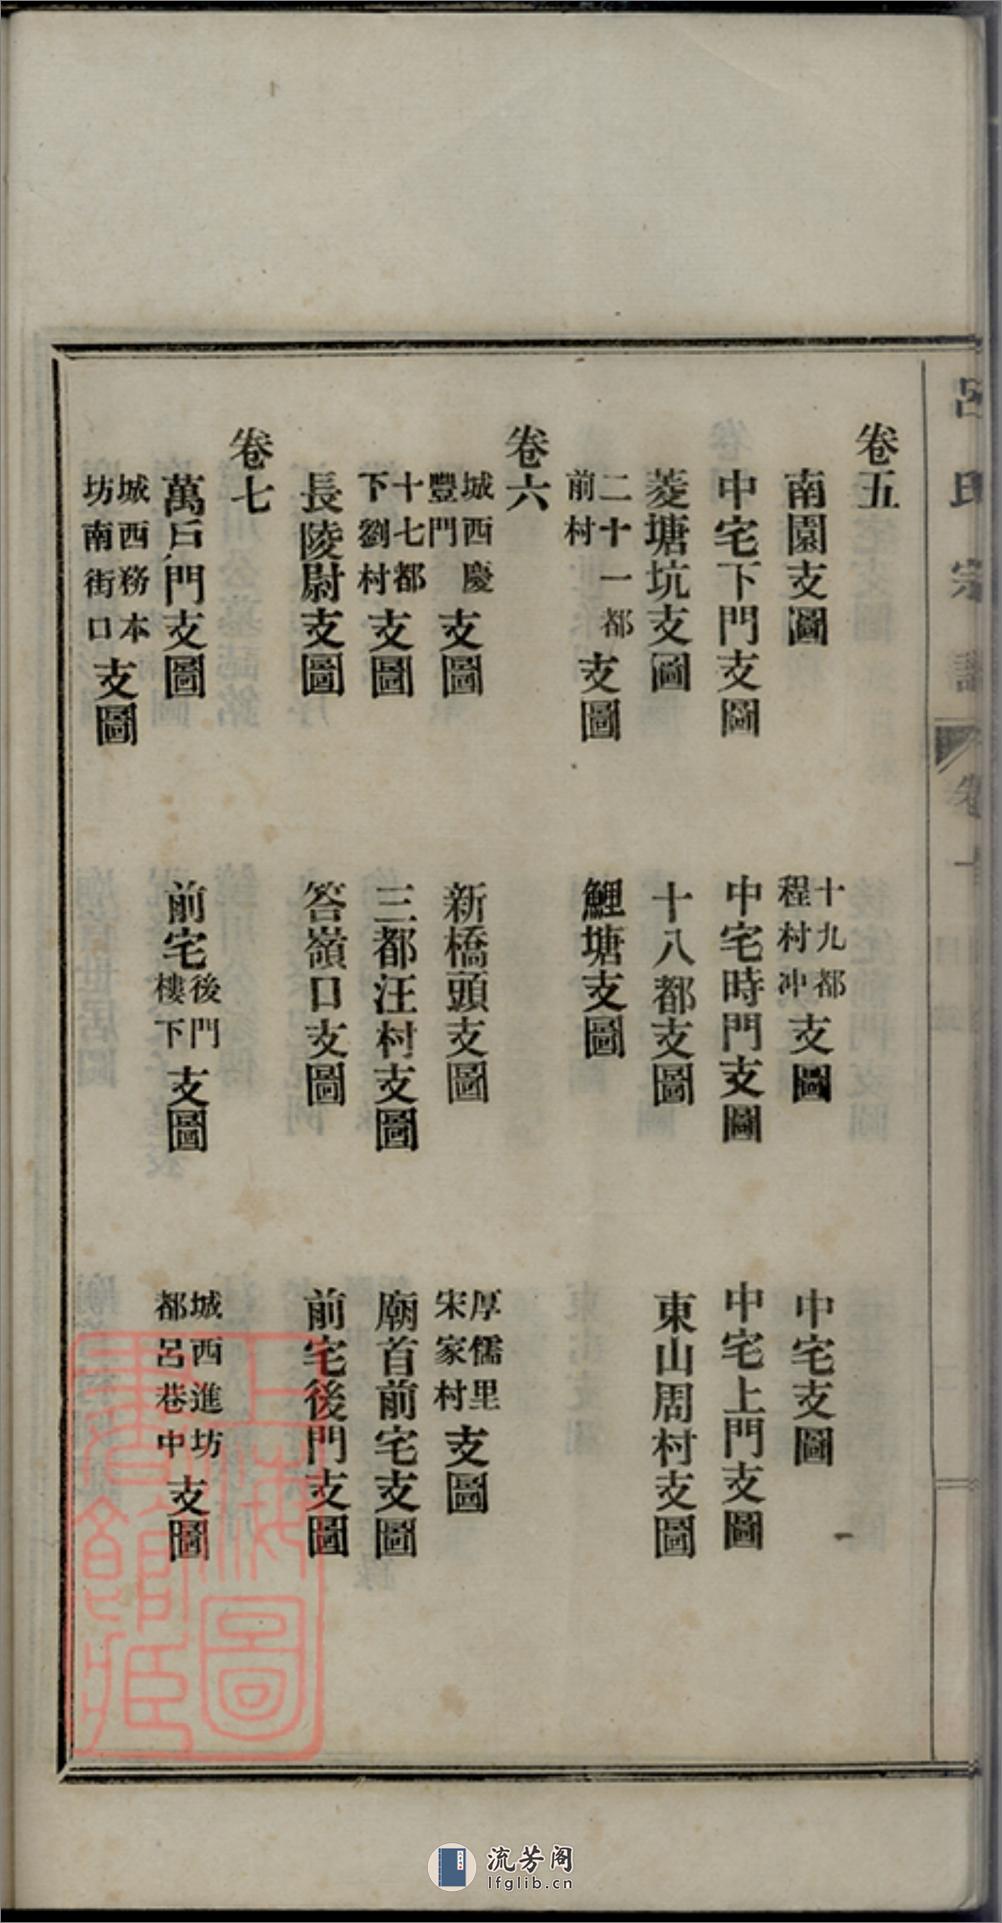 呂氏宗譜 卷
卷五
南園支圖 十九都程村冲支圖 中宅支圖
中宅下門支圖 中宅時門支圖 中宅上門支圖
菱塘坑支圖 十八都支圖 東山周村支圖
二十一都前村支圖 鯉塘支圖
卷六
城西慶豐門支圖 新橋頭支圖 厚儒里宋家村支圖
十七都下劉村支圖 三都汪村支圖 廟首前宅支圖
長陵尉支圖 答嶺口支圖 前宅後門支圖
卷七
萬戶門支圖 前宅後門樓下支圖 城西進坊都呂巷中支圖
城西務本坊南街口支圖
上海圖書館藏
流芳阁
lfglib.cn